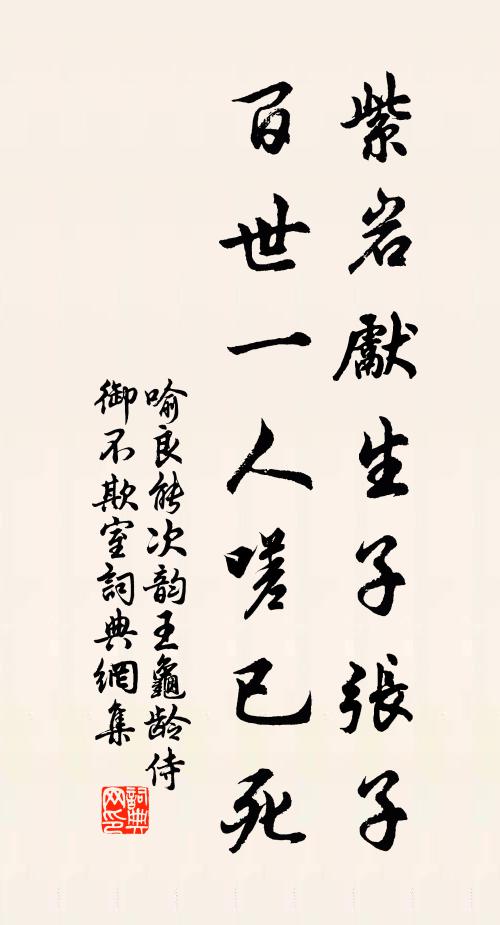 紫岩獻生子張子
百世一人嗟已死
喻良能次韵王龜龄侍
御不欺室詞典網集
詞典网印